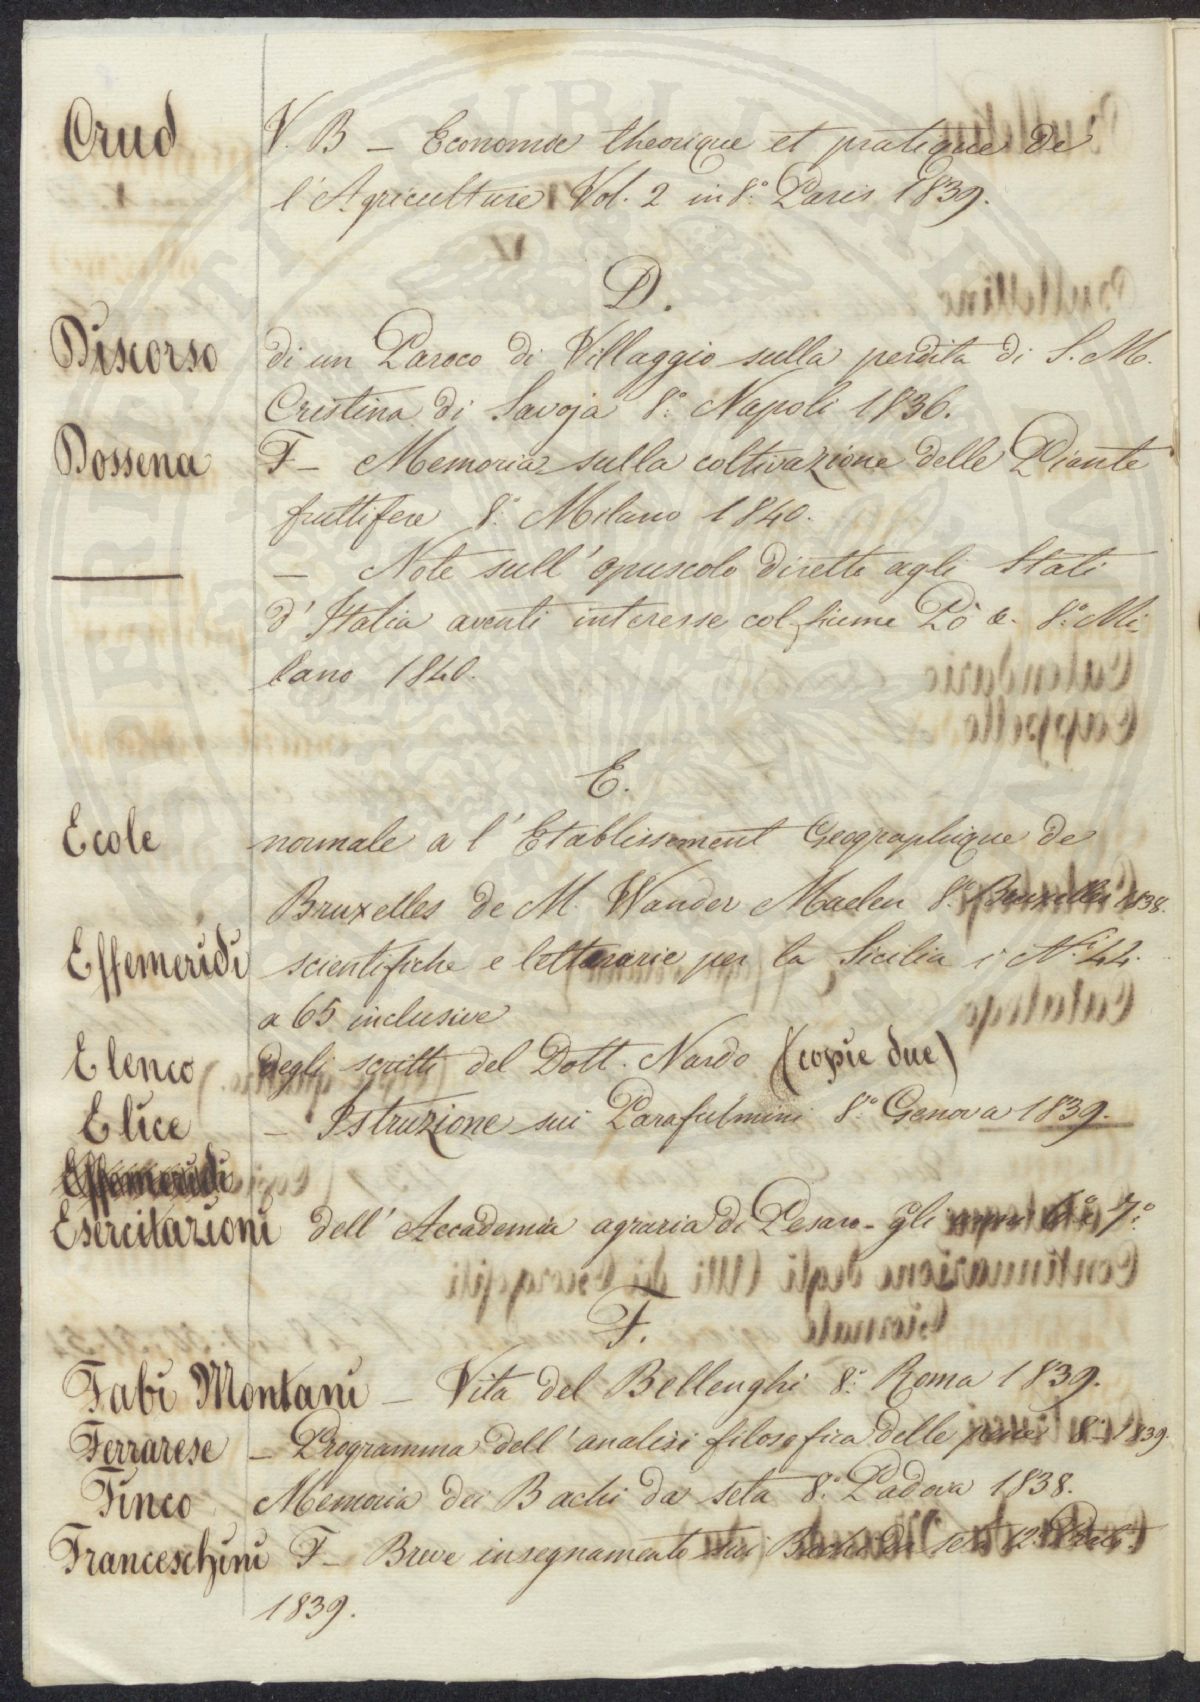 Crud V. B — Economie theorique et pratique de
l'Agriculture Vol. 2 in 8.º Paris 1839.
D.
Discorso di un Paroco di Villaggio sulla perdita di S. M.
Cristina di Savoja 8.º Napoli 1836.
Dossena F — Memoria sulla coltivazione delle Piante
fruttifere 8.º Milano 1840.
— — Note sull' opuscolo diretto agli Stati
d' Italia aventi interesse col fiume Pò &. 8.º Mi-
lano 1840.
E.
Ecole normale a l' Etablissement Geographique de
Bruxelles de M. Wander Maelen 8.º Bruxelles 1838.
Effemeridi scientifiche e letterarie per la Sicilia i N.i 44.
a 65 inclusive
Elenco degli scritti del Dott. Nardo (copie due)
Elice — Istruzione sui Parafulmini 8.º Genova 1839.
Effemeridi
Esercitazioni dell' Accademia agraria di Pesaro — gli 7.º
F.
Fabi Montani — Vita del Bellenghi 8.º Roma 1839.
Ferrarese — Programma dell' analisi filosofica delle pene 8.º 1839.
Finco Memoria dei Bachi da seta 8.º Padova 1838.
Franceschini F — Breve insegnamento sui Bachi da seta 12.º
1839.